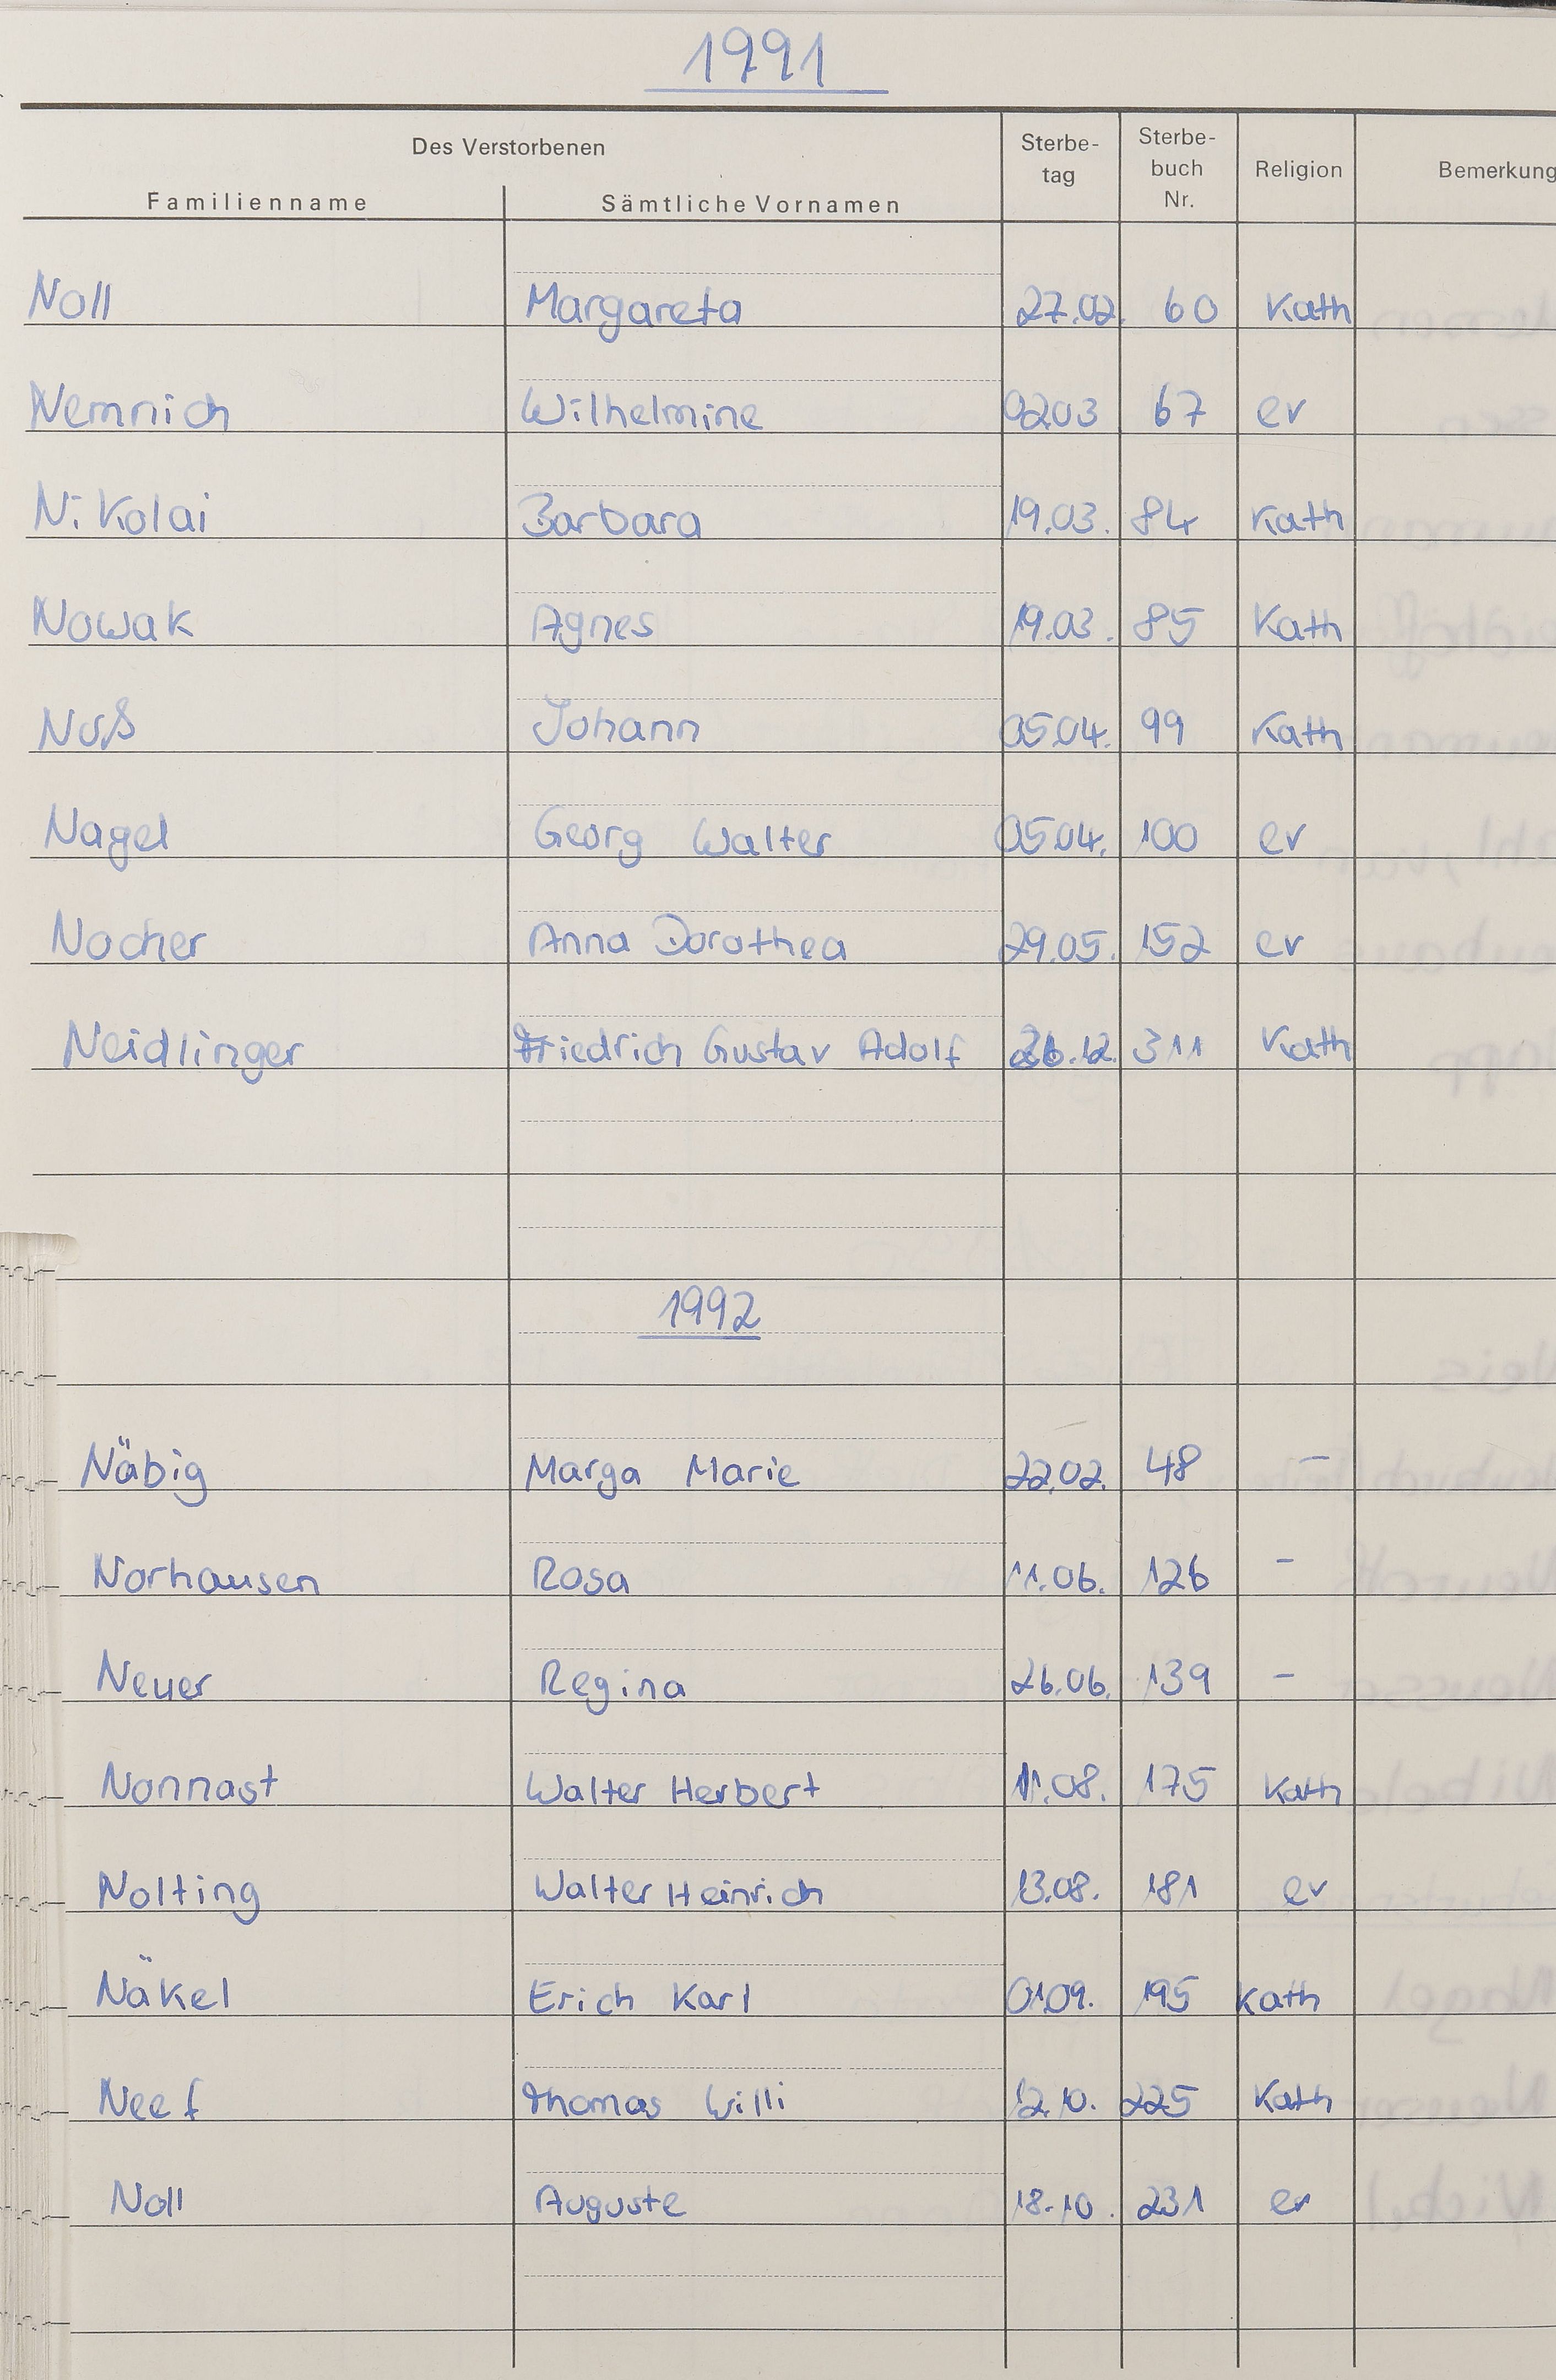 1991
Des Verstorbenen
Familienname Sämtliche Vornamen Sterbe-tag Sterbe-buch Nr. Religion Bemerkung
Noll Margareta 27.02. 60 Kath
Nemnich Wilhelmine 02.03 67 ev
Nikolai Barbara 19.03. 84 Kath
Nowak Agnes 19.03. 85 Kath
Nuß Johann 05.04. 99 Kath
Nagel Georg Walter 05.04. 100 ev
Nocher Anna Dorothea 29.05. 152 ev
Neidlinger Friedrich Gustav Adolf 12. 311 Kath
1992
Näbig Marga Marie 22.02. 48 -
Norhausen Rosa 11.06. 126 -
Neuer Regina 26.06. 139 -
Nonnast Walter Herbert 11.08. 175 Kath
Nolting Walter Heinrich 13.08. 181 ev
Näkel Erich Karl 01.09. 195 Kath
Neef Thomas Willi 12.10. 225 Kath
Noll Auguste 18.10. 231 ev